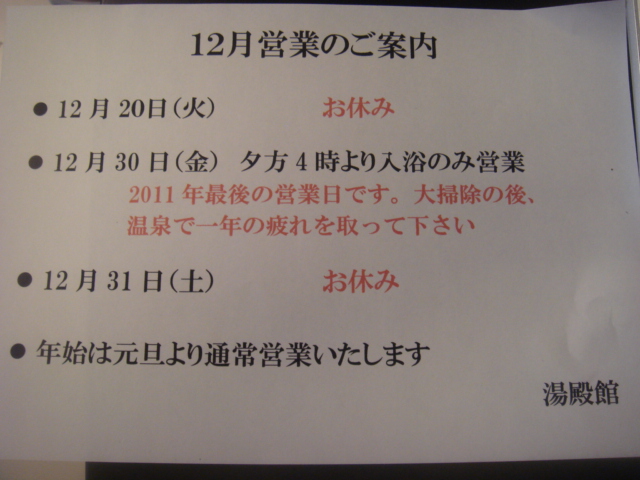 12月営業のご案内
● 12月20日(火) お休み
● 12月30日(金) 夕方4時より入浴のみ営業
2011年最後の営業日です。大掃除の後、
温泉で一年の疲れを取って下さい
● 12月31日(土) お休み
● 年始は元旦より通常営業いたします
湯殿館